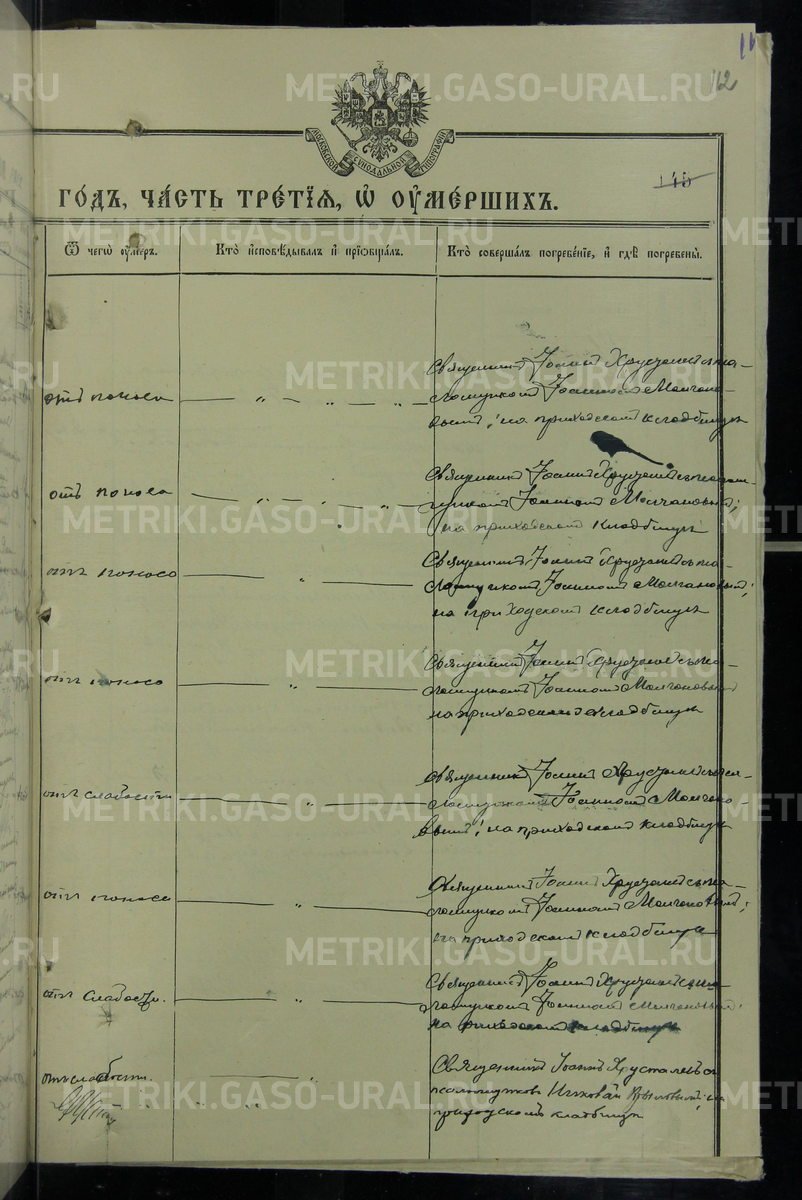 112
МОСКОВСКОЙ СИНОДАЛЬНОЙ ТИПОГРАФІИ
145
ГО́ДЪ, ЧА́СТЬ ТРЕ́ТІЯ, Ѽ ОУМЕ́РШИХЪ.
Ѿ чегѡ̀ оу́меръ.
Кто̀ и҆сповѣ́дывалъ и҆ приѻбща́лъ.
Кто̀ соверша́лъ погребе́нїе, и҆ гдѣ̀ погребены̀.
отъ поноса
Священникъ Іоаннъ Хрусталевъ съ пса-
ломщикомъ Іоанномъ Молчано-
вымъ; на приходскомъ кладбищѣ
отъ поноса
Священникъ Іоаннъ Хрусталевъ съ псалом-
щикомъ Іоанномъ Молчановымъ;
на приходскомъ кладбищѣ
отъ поноса
Священникъ Іоаннъ Хрусталевъ съ пса-
ломщикомъ Іоанномъ Молчановымъ;
на приходскомъ кладбищѣ
отъ поноса
Священникъ Іоаннъ Хрусталевъ съ пса-
ломщикомъ Іоанномъ Молчановымъ
на приходскомъ кладбищѣ
отъ слабости
Священникъ Іоаннъ Хрусталевъ съ пса-
ломщикомъ Іоанномъ Молчано-
вымъ; на приходскомъ кладбищѣ
отъ поноса
Священникъ Іоаннъ Хрусталевъ съ пса-
ломщикомъ Іоанномъ Молчановымъ;
на приходскомъ кладбищѣ
отъ слабости.
Священникъ Іоаннъ Хрусталевъ съ пса-
ломщикомъ Іоанномъ Молчановымъ;
на приходскомъ кладбищѣ
отъ слабости.
Священникъ Іоаннъ Хрусталевъ съ
псаломщикомъ
приходскомъ кладбищѣ
METRIKI.GASO-URAL.RU